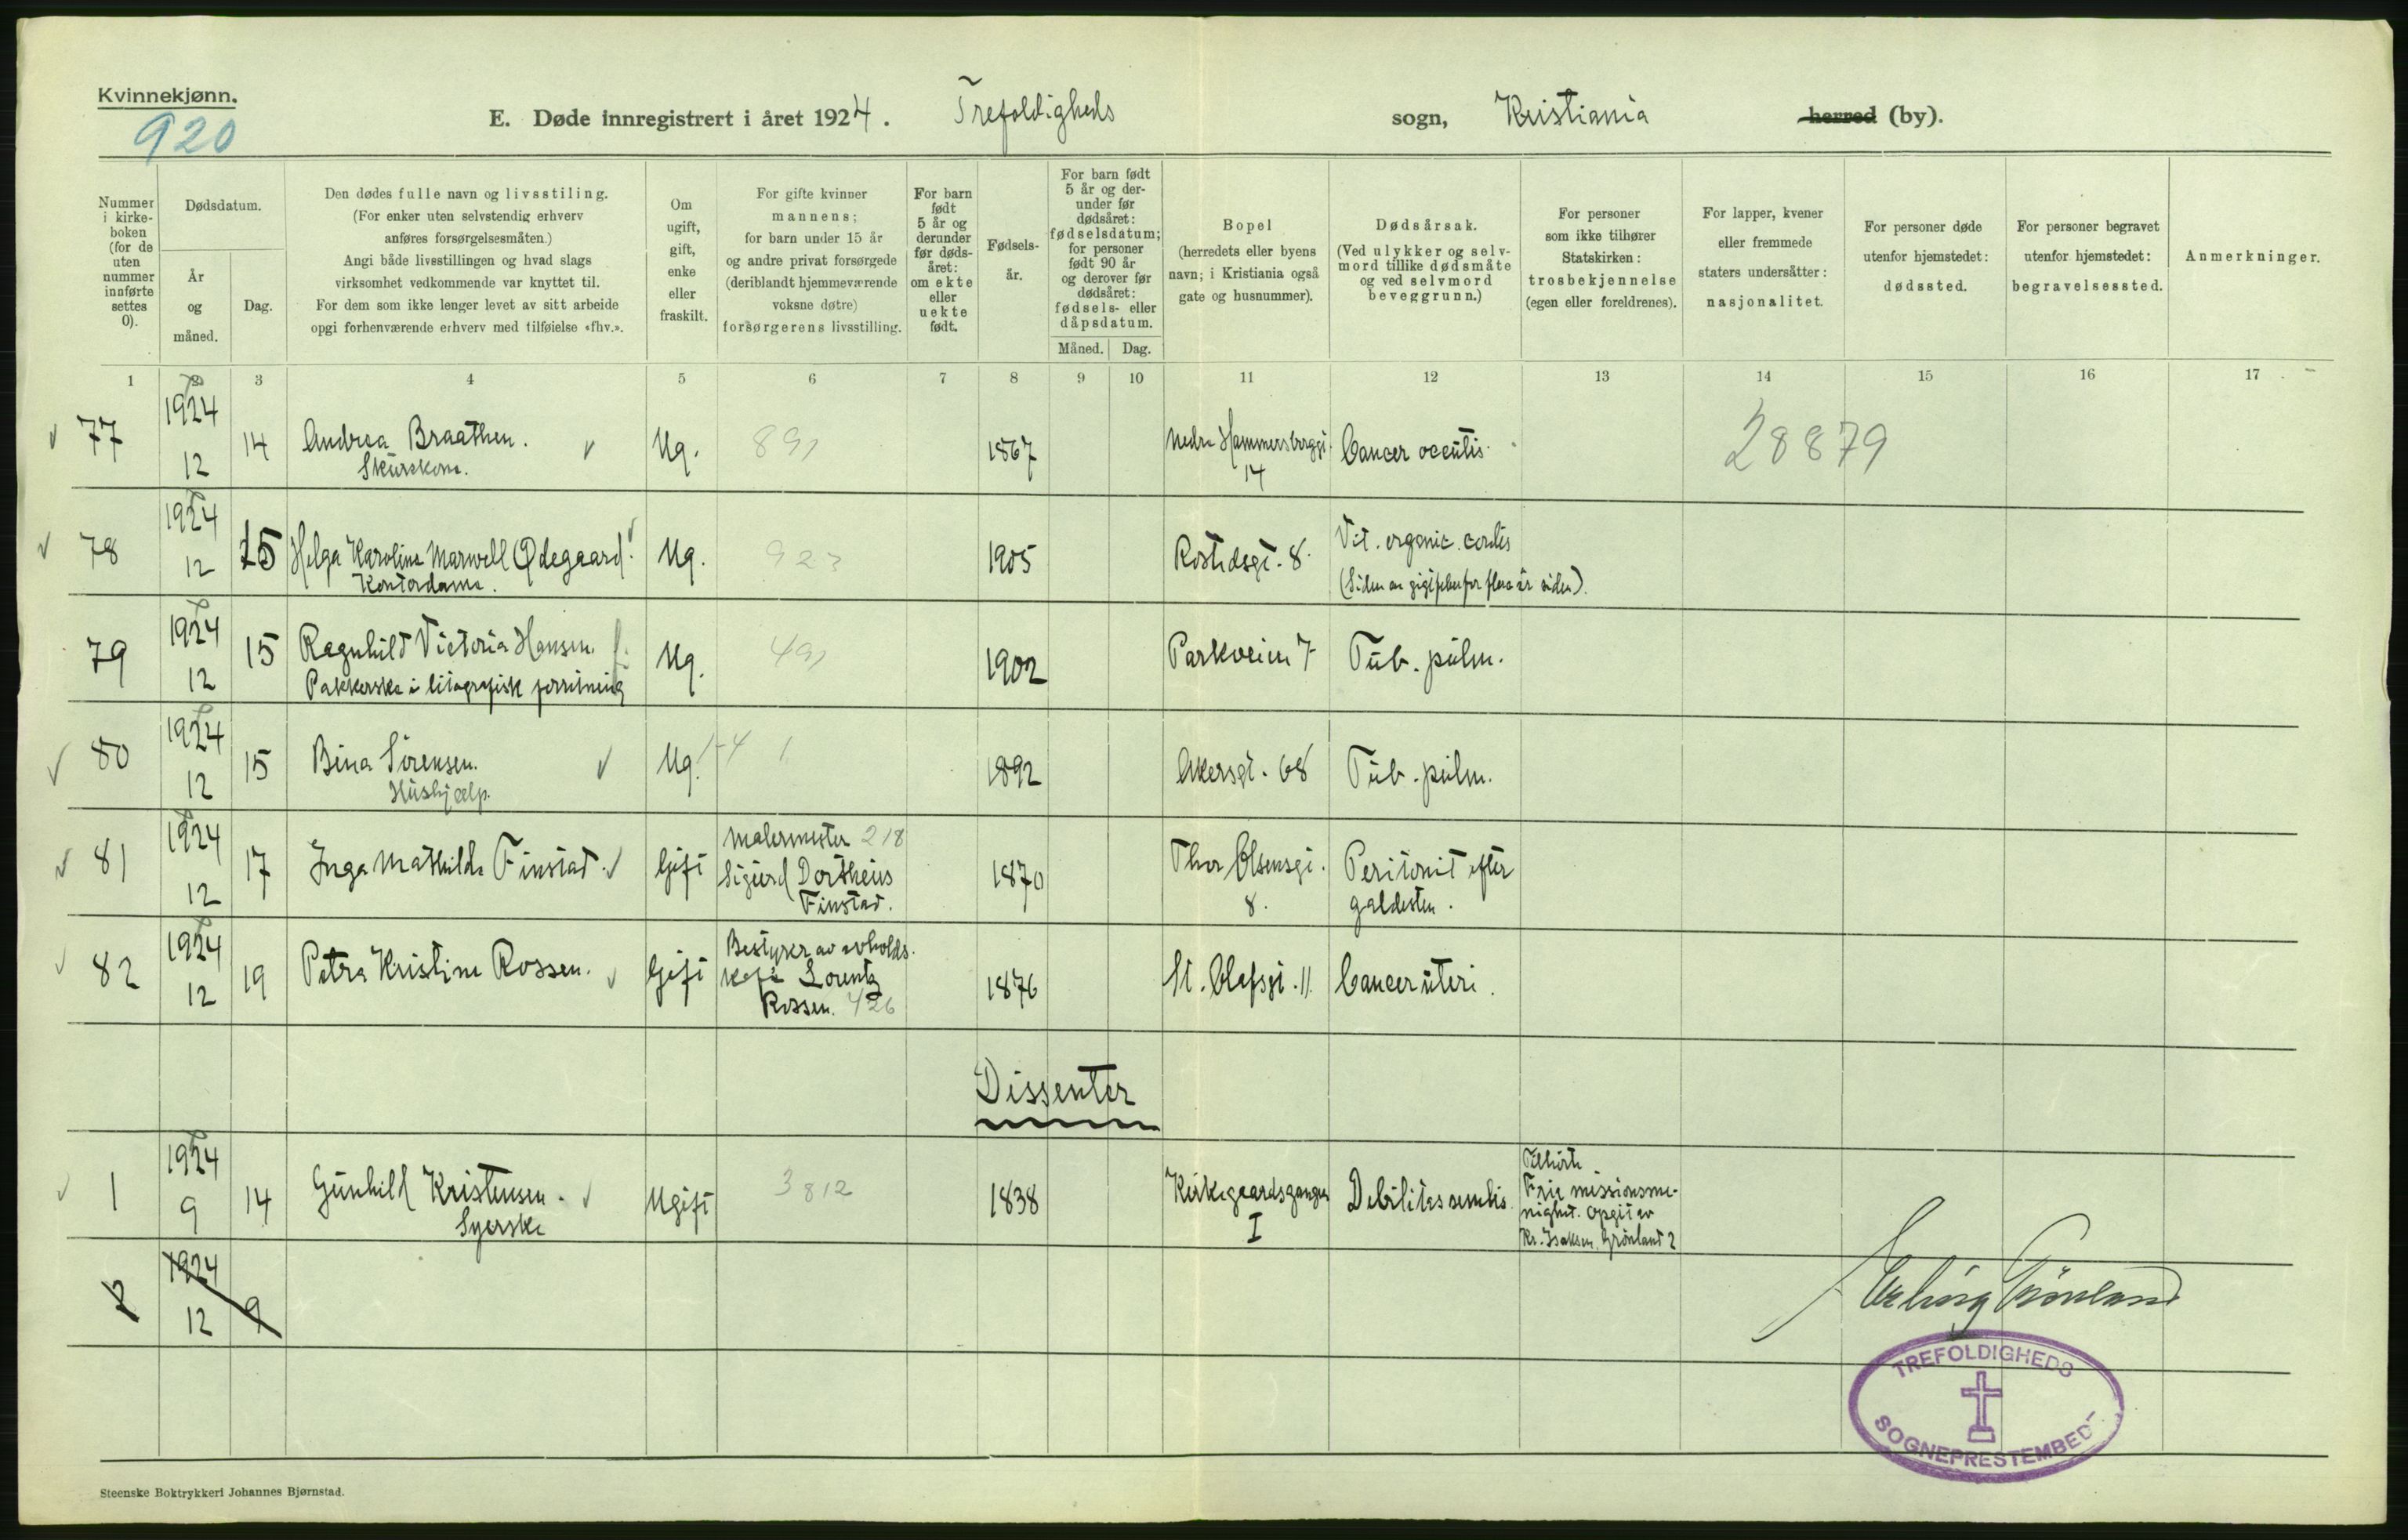 Kvinnekjønn.
920
E. Døde innregistrert i året 1924. Trefoldigheds sogn, Kristiania herred (by).
Nummer i kirkeboken (for de uten nummer innførte settes 0).
Dødsdatum.
År og måned.
Dag.
Den dødes fulle navn og livsstiling.
(For enker uten selvstendig erhverv
anføres forsørgelsesmåten.)
Angi både livsstillingen og hvad slags
virksomhet vedkommende var knyttet til.
For dem som ikke lenger levet av sitt arbeide
opgi forhenværende erhverv med tilføielse «fhv.».
Om
ugift,
gift,
enke
eller
fraskilt.
For gifte kvinner
mannens;
for barn under 15 år
og andre privat forsørgede
(deriblandt hjemmeværende
voksne døtre)
forsørgerens livsstilling.
For barn
født
5 år og
derunder
før døds-
året:
om ekte
eller
uekte
født.
Fødsels-
år.
For barn født
5 år og der-
under før
dødsåret:
fødselsdatum;
for personer
født 90 år
og derover før
dødsåret:
fødsels- eller
dåpsdatum.
Måned. Dag.
Bopel
(herredets eller byens
navn; i Kristiania også
gate og husnummer).
Dødsårsak.
(Ved ulykker og selv-
mord tillike dødsmåte
og ved selvmord
beveggrunn.)
For personer
som ikke tilhører
Statskirken:
trosbekjennelse
(egen eller foreldrenes).
For lapper, kvener
eller fremmede
staters undersåtter:
nasjonalitet.
For personer døde
utenfor hjemstedet:
dødssted.
For personer begravet
utenfor hjemstedet:
begravelsessted.
Anmerkninger.
1 2 3 4 5 6 7 8 9 10 11 12 13 14 15 16 17
77 1924 12 14 Andrea Braathen. Ug. 891 1867 Nedre Hammersborggt. 14 Cancer occutis. 28879
Skurekone.
78 1924 12 15 Helga Karoline Marwell Ødegaard. Ug. 923 1905 Rostedsgt. 8. Vit. organic. cordis
Kontordame. (Siden en gigtfeber for flere år siden).
79 1924 12 15 Ragnhild Victoria Hansen. Ug. 491 1902 Parkveien 7 Tub. pulm.
Pakkerske i litografisk forretning
80 1924 12 15 Bina Sørensen. Ug. 1892 Akersgt. 68 Tub. pulm.
Hushjælp.
81 1924 12 17 Inga Mathilde Finstad. Gift Malermester 218
Sigurd Dortheus
Finstad. 1870 Thor Olsensgt. 8. Peritonit efter
galdesten.
82 1924 12 19 Petra Kristine Rossen. Gift Bestyrer av avholds-
kafe Lorentz
Rossen. 426 1876 St. Olafsgt. 11. Cancer uteri.
Dissenter
1 1924 9 14 Gunhild Kristensen. Ugift 3812 1838 Kirkegaardsgangen I Debilitas senilis.
Syerske
Tilhørte
Frie missionsme-
nighet. Opgit av
Kr. Isaksen, Grønland 2
2 1924 12 9
Erling Grønland
TREFOLDIGHEDS
SOGNEPRESTEMBED
Steenske Boktrykkeri Johannes Bjørnstad.